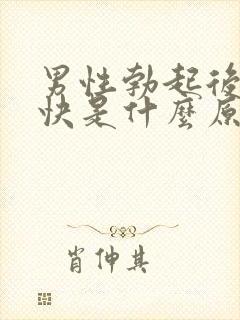 男性勃起後
快是什麼原
肖伸其